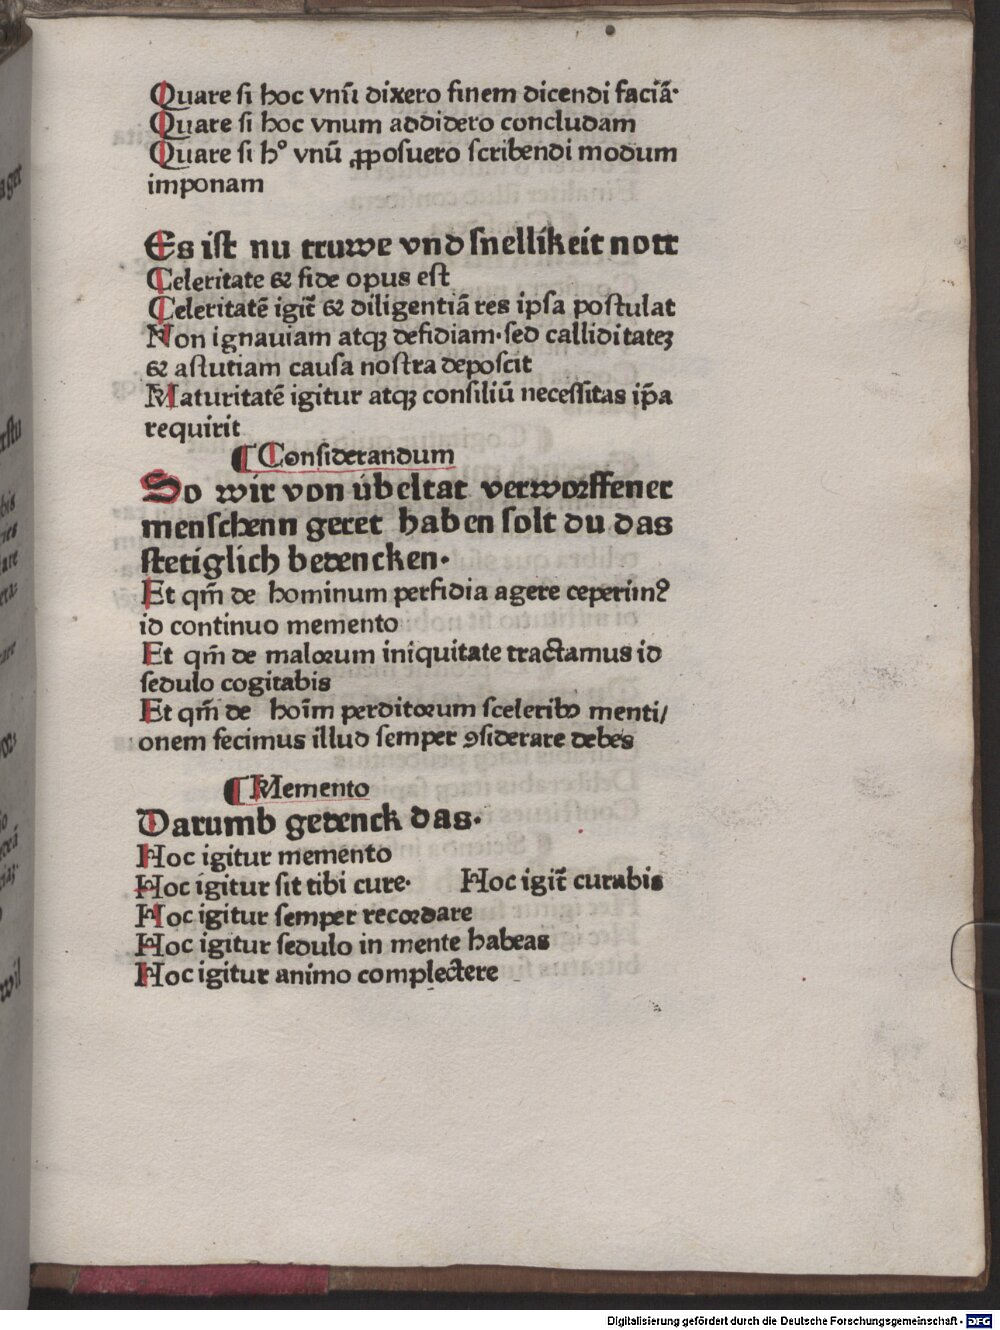 Quare si hoc vnū dixero finem dicendi faciā·
Quare si hoc vnum addidero concludam
Quare si hº vnū ꝓposuero scribendi modum
imponam
Es ist nu truwe vnd snellikeit nott
Celeritate & fide opus est
Celeritatē igit̄ & diligentiā res ipsa postulat
Non ignauiam atqꝫ desidiam·sed calliditateꝫ
& astutiam causa nostra deposcit
Maturitatē igitur atqꝫ consiliū necessitas ip̄a
requirit
¶ Considerandum
So wir von úbeltat verworffener
menschenn geret haben solt du das
stetiglich bedencken·
Et qm̄ de hominum perfidia agere ceperimꝰ
id continuo memento
Et qm̄ de malorum iniquitate tractamus id
sedulo cogitabis
Et qm̄ de hoīm perditorum sceleribꝫ menti/
onem fecimus illud semper ꝯsiderare debes
¶ Memento
Darumb gedenck das·
Hoc igitur memento
Hoc igitur sit tibi cure· Hoc igit̄ curabis
Hoc igitur semper recordare
Hoc igitur sedulo in mente habeas
Hoc igitur animo complectere
Digitalisierung gefördert durch die Deutsche Forschungsgemeinschaft - DFG